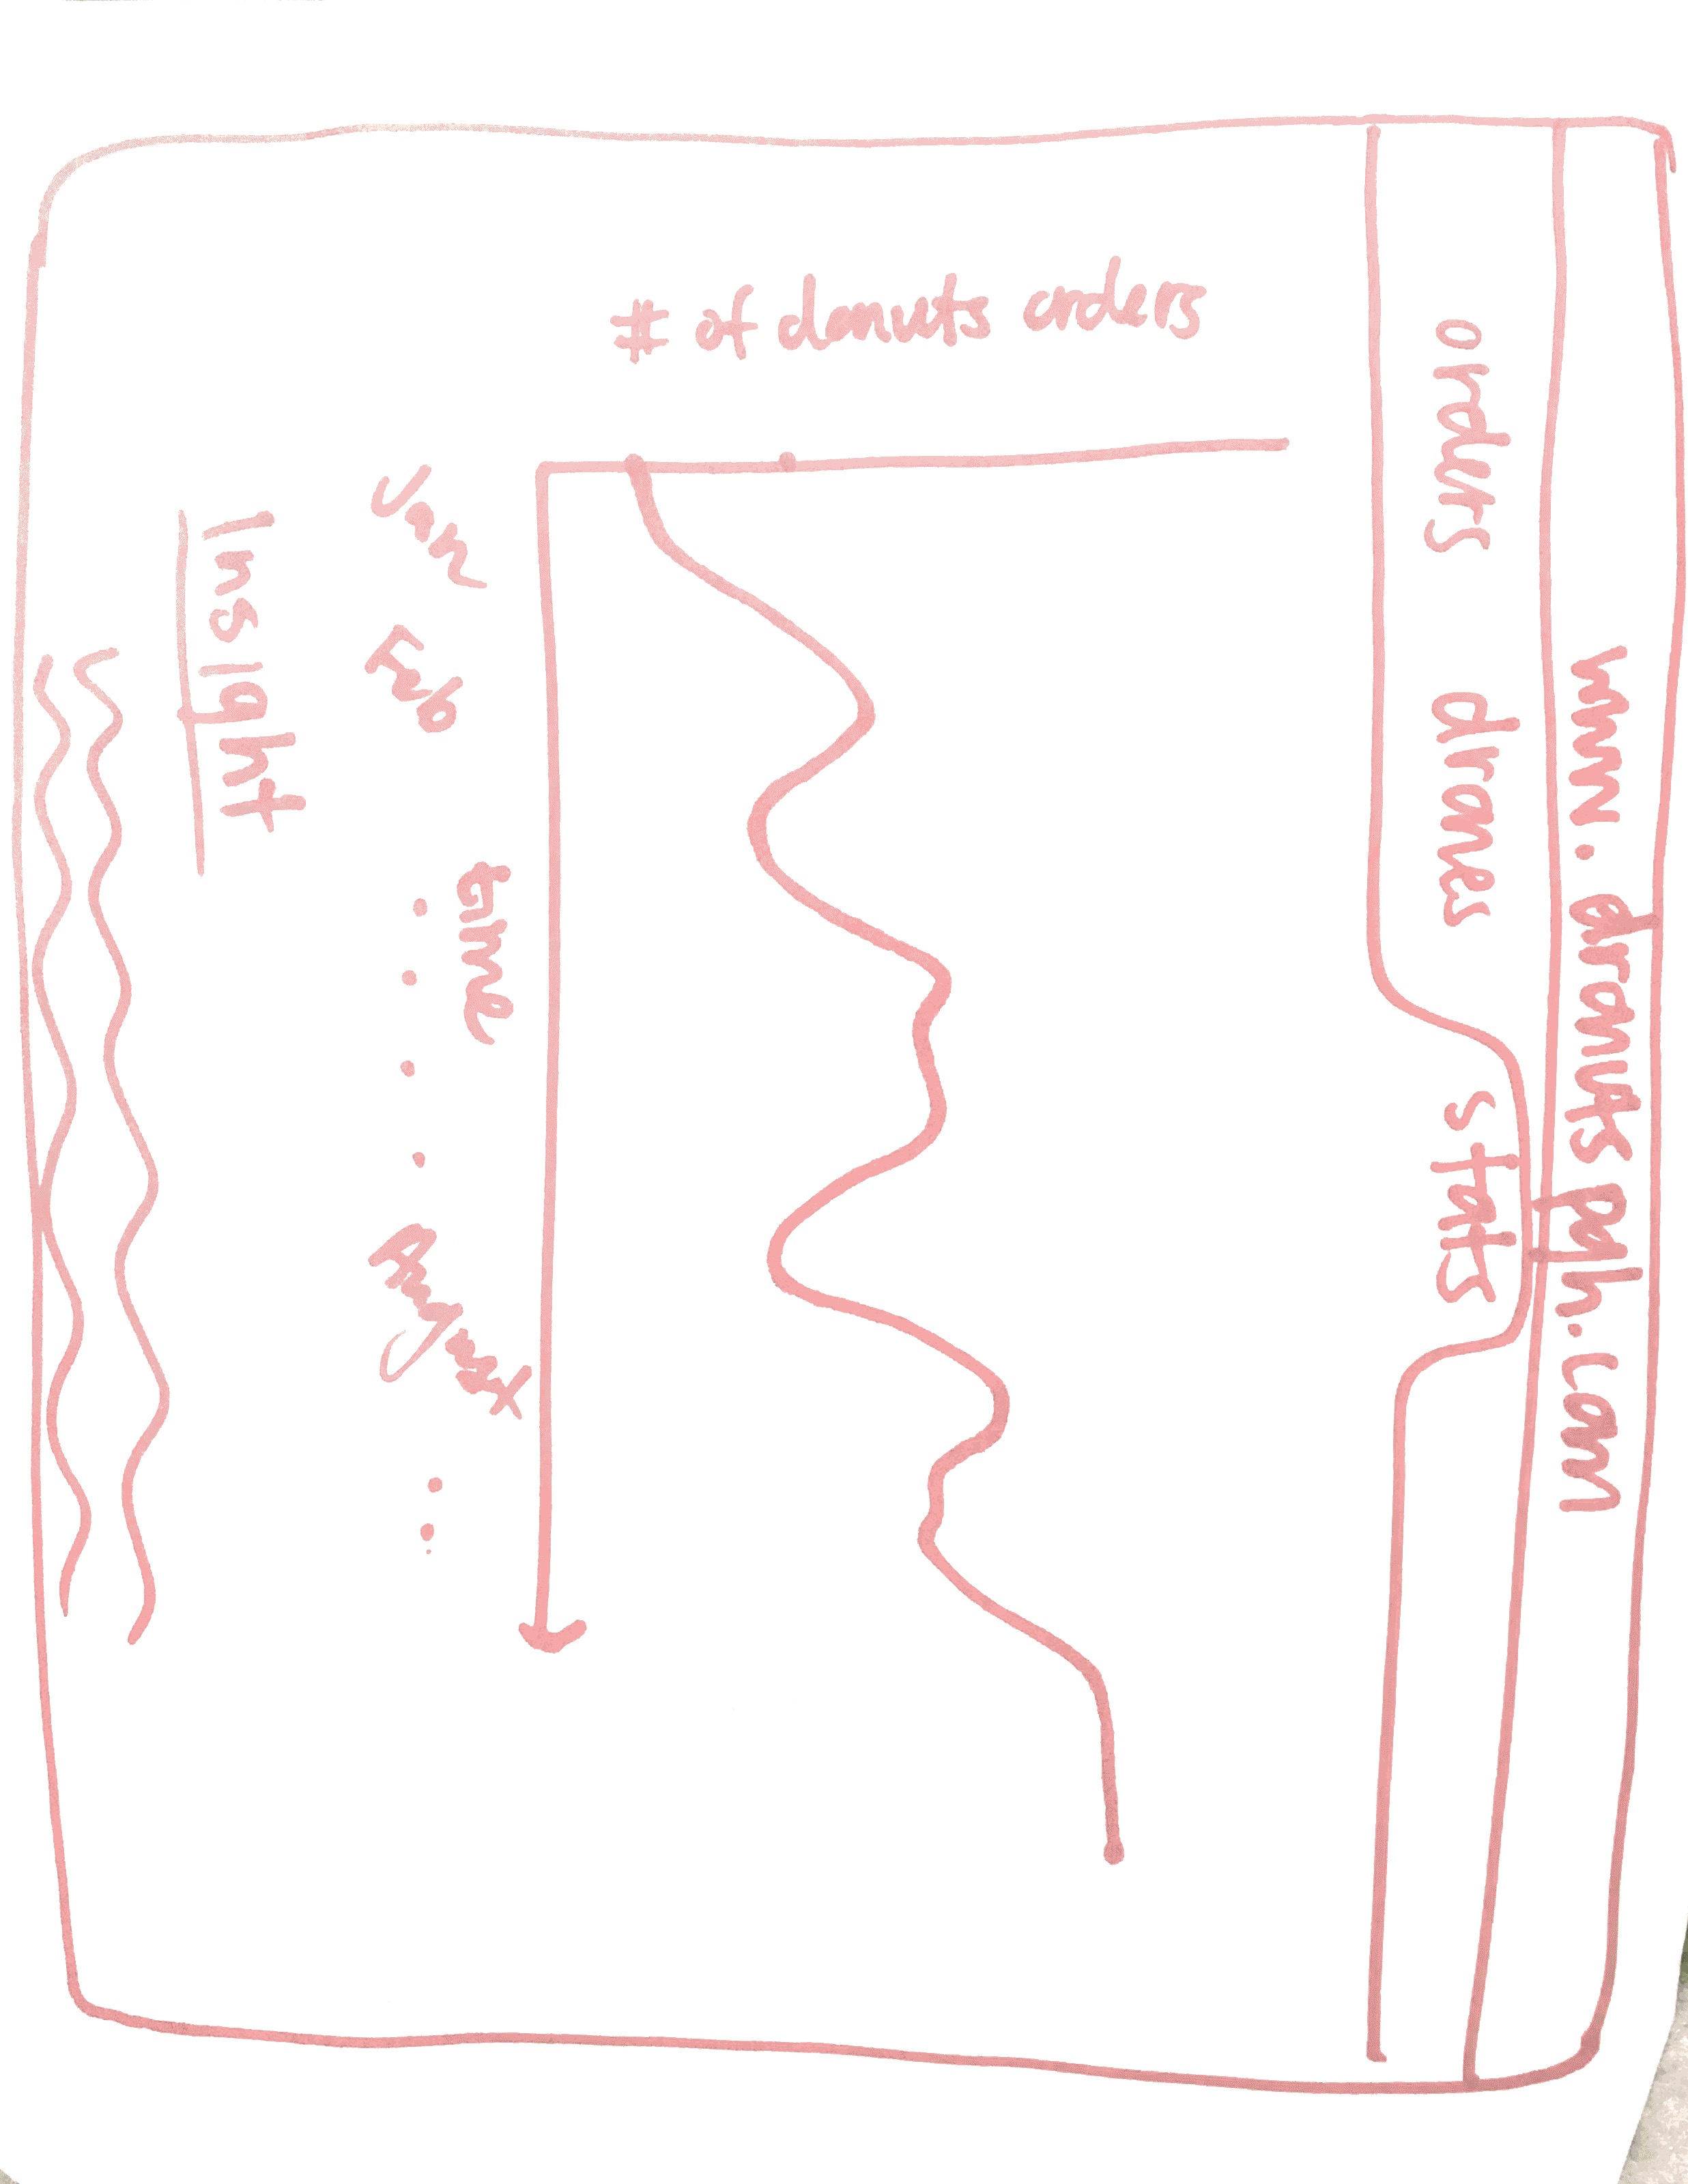 www.dronutspgh.com
orders drones stats
# of donuts orders
time
Jan Feb . . . . August . .
Insight